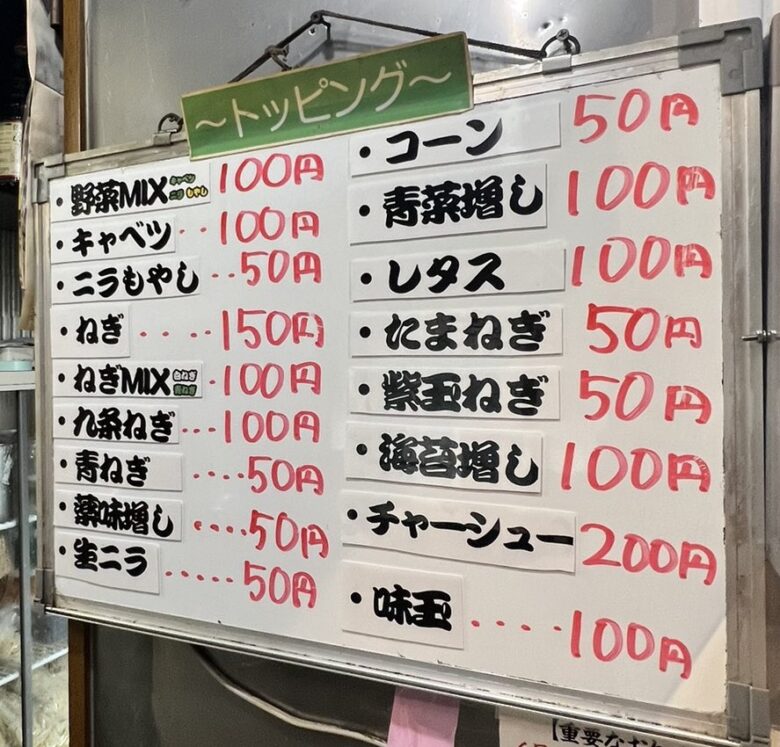 ～トッピング～
・野菜MIX キャベツ ニラ もやし 100円
・キャベツ ‥100円
・ニラもやし ‥50円
・ねぎ ････150円
・ねぎMIX 白ねぎ 青ねぎ ･100円
・九条ねぎ ･･･100円
・青ねぎ ････50円
・薬味増し ････50円
・生ニラ ･････50円
・コーン 50円
・青菜増し 100円
・レタス 100円
・たまねぎ 50円
・紫玉ねぎ 50円
・海苔増し 100円
・チャーシュー 200円
・味玉 ････100円
【重要なお